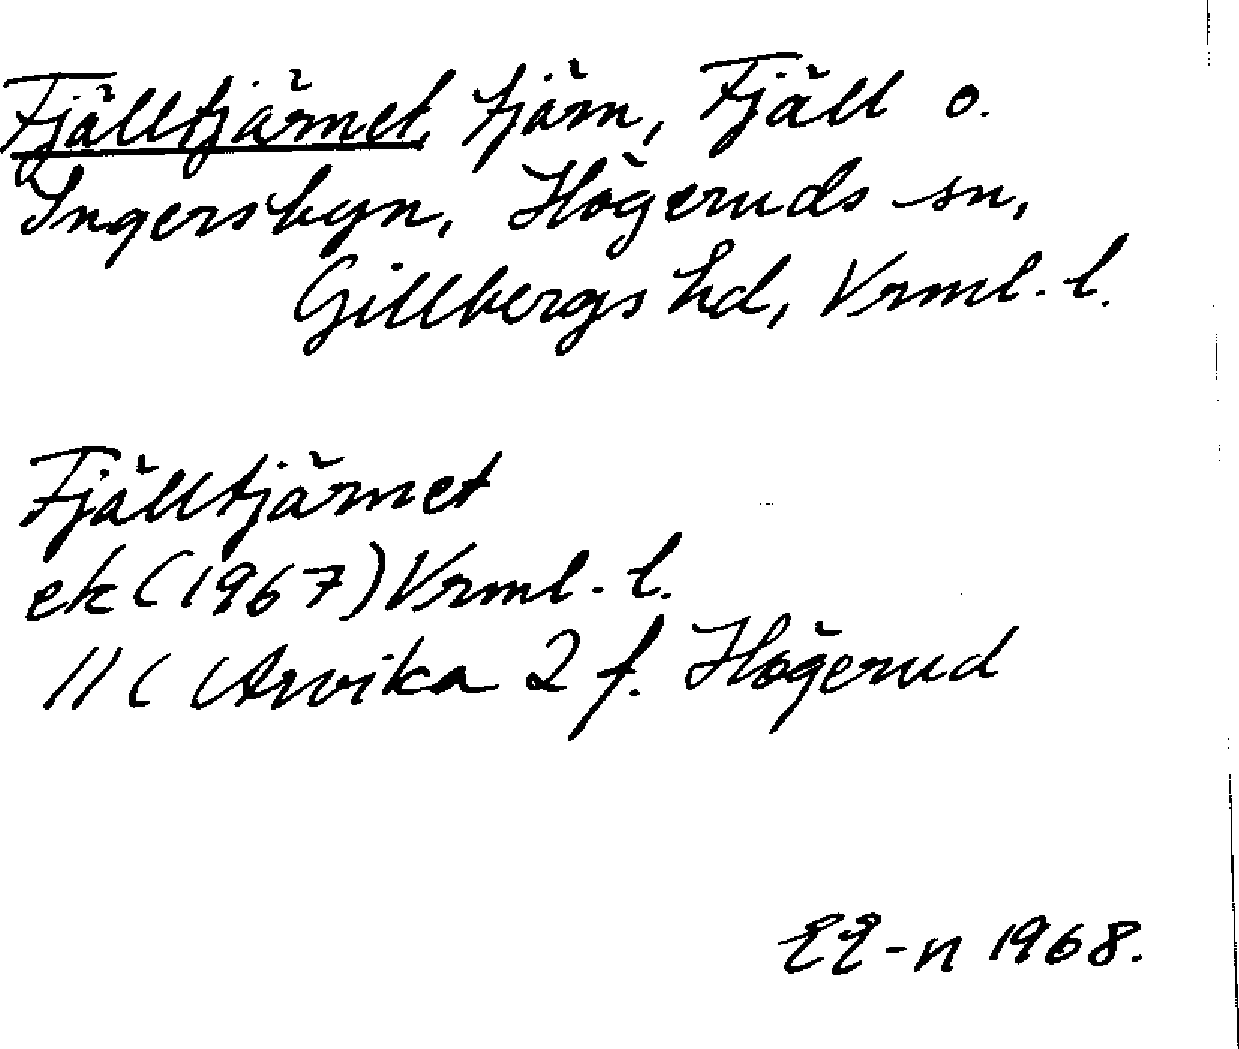 Fjälltjärnet, tjärn, Fjäll o.
Ingersbyn, Högeruds sn,
Gillbergs hd, Vrml. l.
Fjälltjärnet
ek (1967) Vrml. l.
11 C Arvika 2 f. Högerud
EE-n 1968.